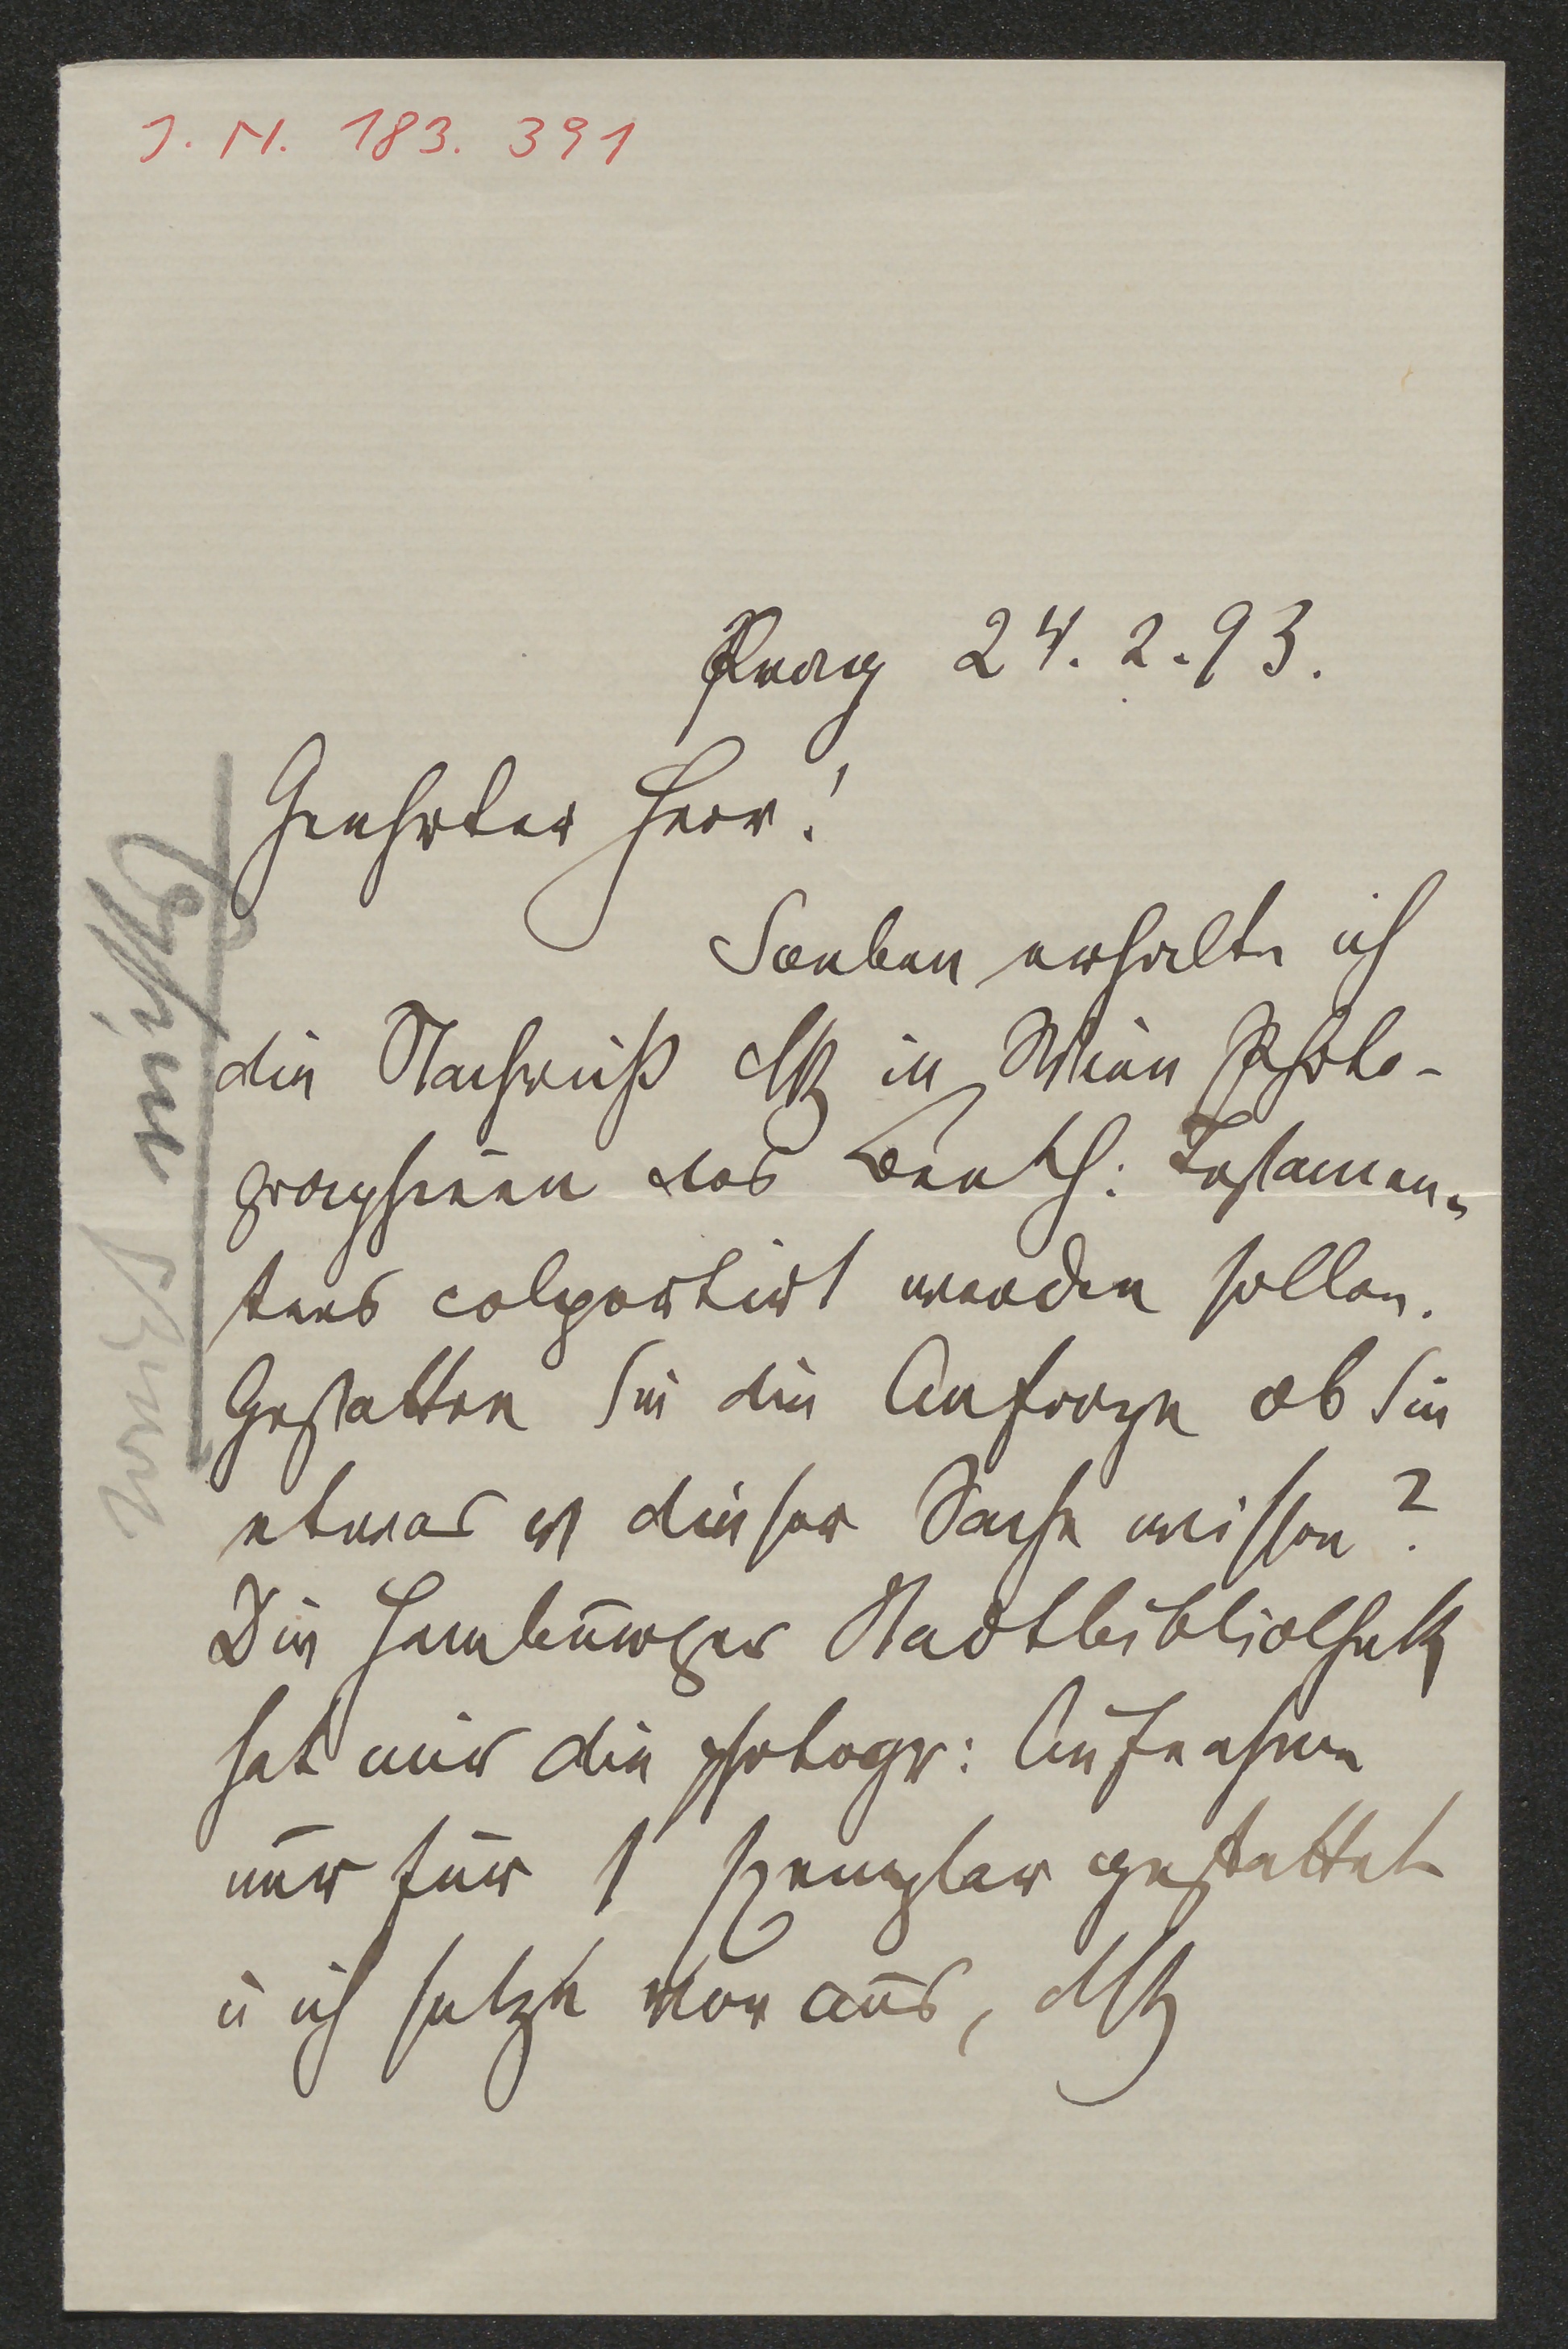 J. N. 183. 391
Prag 24. 2. 93.
Geehrter Herr!
Soeben erhalte ich
die Nachricht daß in Wien Photo-
graphieen des Beeth: Testamen-
tes colportirt werden sollen.
Gestatten Sie die Anfrage ob Sie
etwas v dieser Sache wissen?
Die Hamburger Stadtbibliothek
hat mir die photogr: Aufnahme
nur für 1 Exemplar gestattet
u ich setze voraus, daß
wichtig